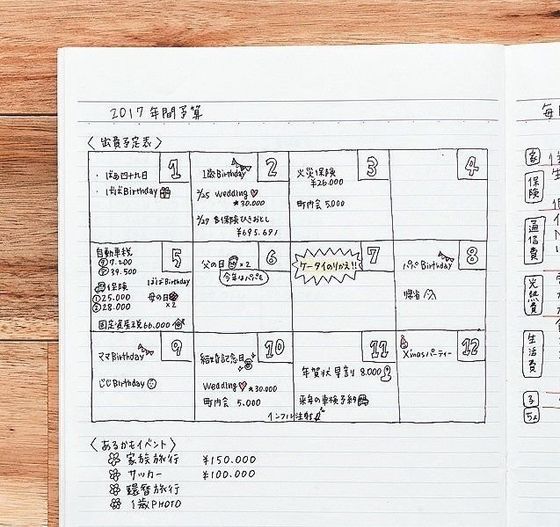 2017年間予算
〈出費予定表〉
1
・ばぁ四十九日
・ばぁばBirthday
2
Birthday
2/25 Wedding
30.000
2/27 保険ひきおとし
¥695.691
3
火災保険
¥26.000
町内会 5.000
4
5
自動車税
7.200
39.500
保険
①25.000
②28.000
ばぁばBirthday
母の日
×2
固定資産税66.000
6
父の日 ×2
今年はパパも
7
ケータイのりかえ!!
8
パパBirthday
帰省
9
ママBirthday
じじBirthday
10
結婚記念日
Wedding 30.000
町内会 5.000
11
年賀状早割 8.000
来年の車検予約
インフル注射
12
Xmasパーティー
〈あるかもイベント〉
家族旅行 ¥150.000
サッカー ¥100.000
還暦旅行
1歳PHOTO
毎
家
保険
通信費
光熱費
生活費
子